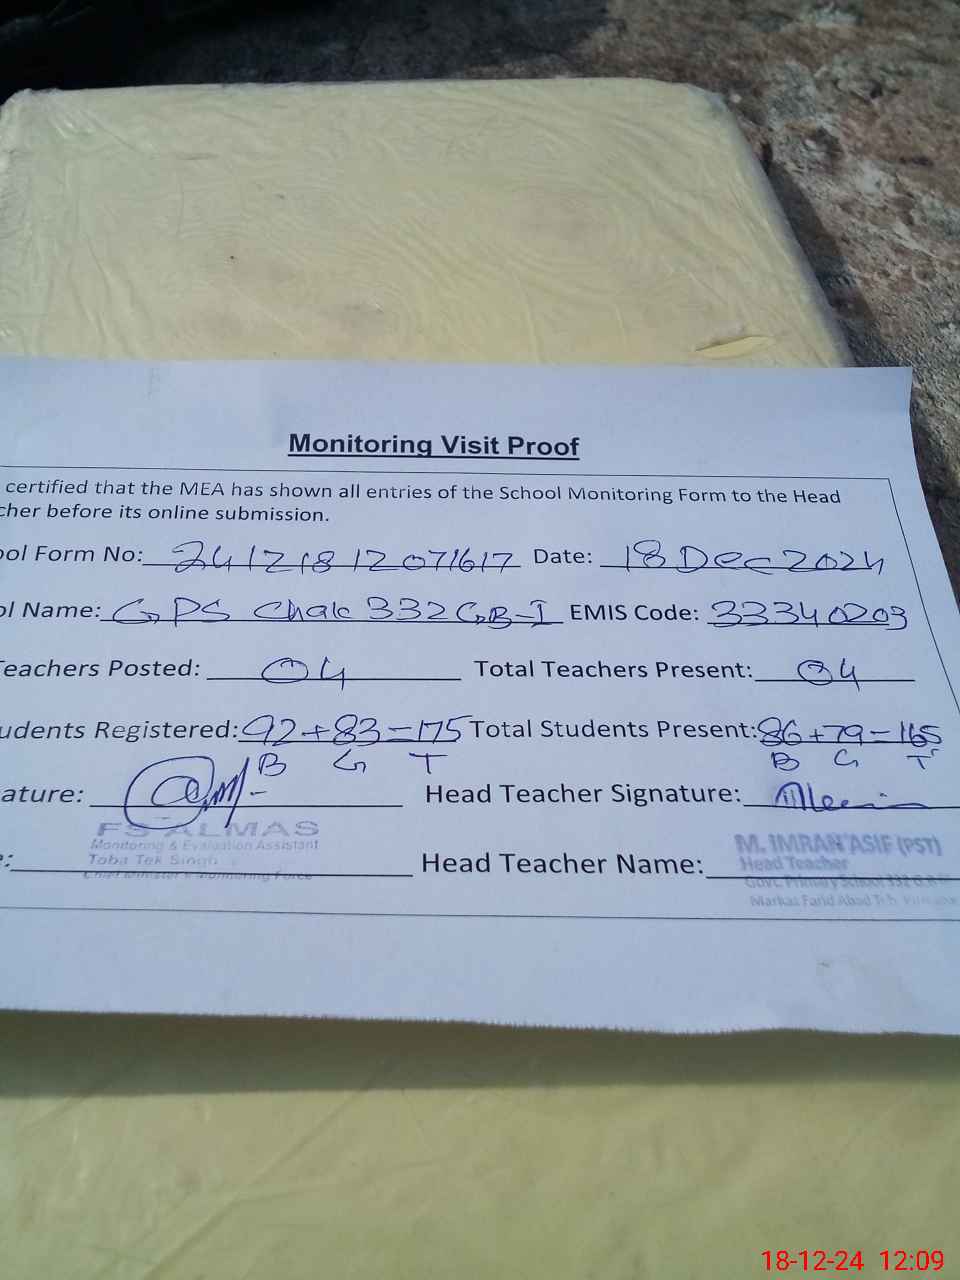 Monitoring Visit Proof
certified that the MEA has shown all entries of the School Monitoring Form to the Head
cher before its online submission.
ool Form No: 24121812071617 Date: 18 Dec 2024
ol Name: GPS Chak 332 GB-I EMIS Code: 33340203
Teachers Posted: 04 Total Teachers Present: 04
udents Registered: 92+83=175 Total Students Present: 86+79=165
B G T B G T
ature: Head Teacher Signature:
FS ALMAS
Monitoring & Evaluation Assistant
Toba Tek Singh
Chief Minister's Monitoring Force
e: Head Teacher Name:
M. IMRAN ASIF (PST)
Head Teacher
Govt. Primary School 332 G.B
Markas Farid Abad Teh.
18-12-24 12:09